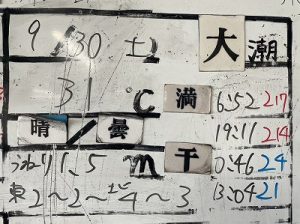 9/30 土 大潮
31 ℃ 満 6:52 217
晴/曇 19:11 214
うねり1.5 m 干 0:46 24
東2〜2〜北4〜3 13:04 21